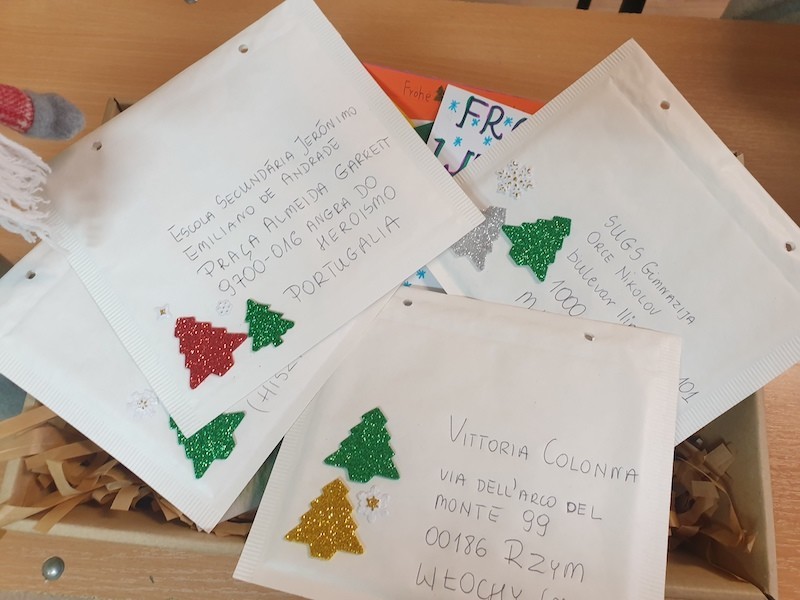 ESCOLA SECUNDÁRIA JERÓNIMO
EMILIANO DE ANDRADE
PRAÇA ALMEIDA GARRETT
9700-016 ANGRA DO
HEROÍSMO
PORTUGALIA
Frohe
FRO
SUGS Gimnazija
ORCE NIKOLOV
bulevar Ilin
1000
M
101
(HISZ
VITTORIA COLONNA
VIA DELL'ARCO DEL
MONTE 99
00186 RZYM
WŁOCHY